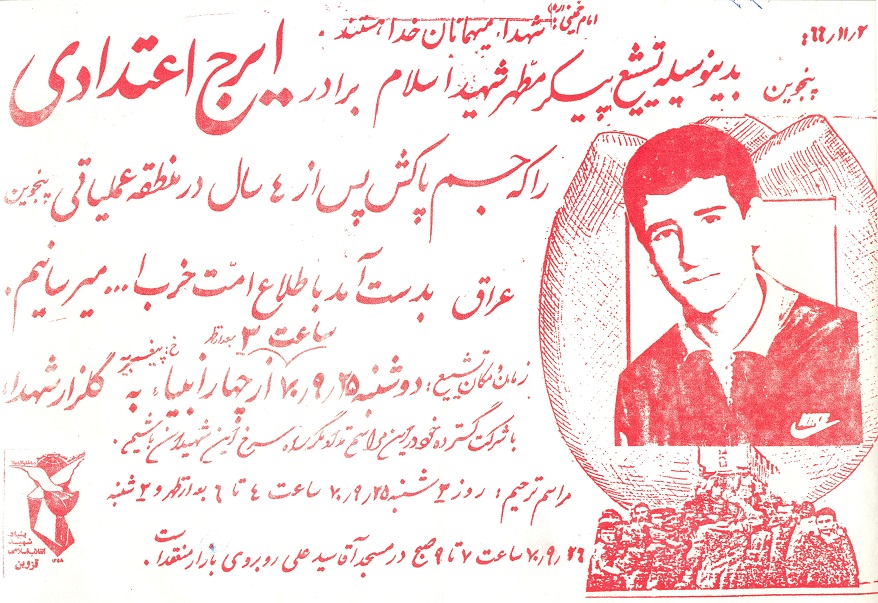 امام خمینی (ره): شهداء میهمانان خدا هستند.
۶۶/۱۱/۲:
پنجوین
بدینوسیله تشیع پیکر مطهر شهید اسلام برادر ایرج اعتدادی
را که جسم پاکش پس از ٤ سال در منطقه عملیاتی پنجوین
عراق بدست آمد باطلاع امت حزب ا... میرسانیم.
ساعت ۳ بعد از ظهر
زمان و مکان تشیع: دوشنبه ۷۰/۹/۲۵ از چهار انبیاء به گلزار شهداء
خ: پیغمبریه
با شرکت گسترده خود در این مراسم تداوم گر راه سرخ این شهیدان باشیم.
مراسم ترحیم: روز ۳ شنبه ۷۰/۹/۲۵ ساعت ٤ تا ۶ بعد از ظهر و ۳ شنبه
۷۰/۹/۲۶ ساعت ۷ تا ۹ صبح در مسجد آقا سید علی روبروی بازار منعقد است.
بنیاد
شهید
انقلاب اسلامی
قزوین